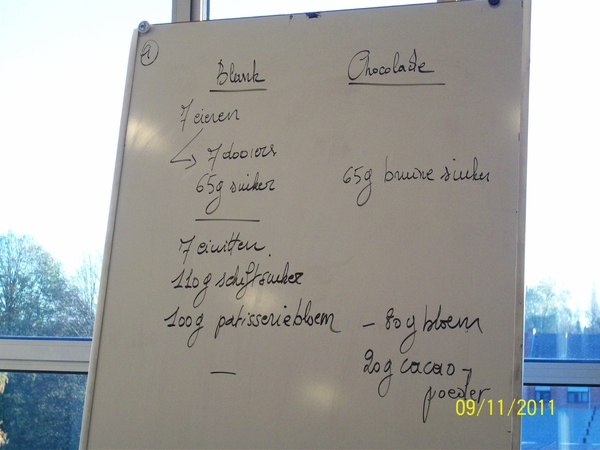 9
Blank
Chocolade
7 eieren
7 dooiers
65g suiker
65g bruine suiker
7 eiwitten.
110g schiftsuiker
100g patisseriebloem
- 80g bloem
-
20g cacao-
poeder
09/11/2011